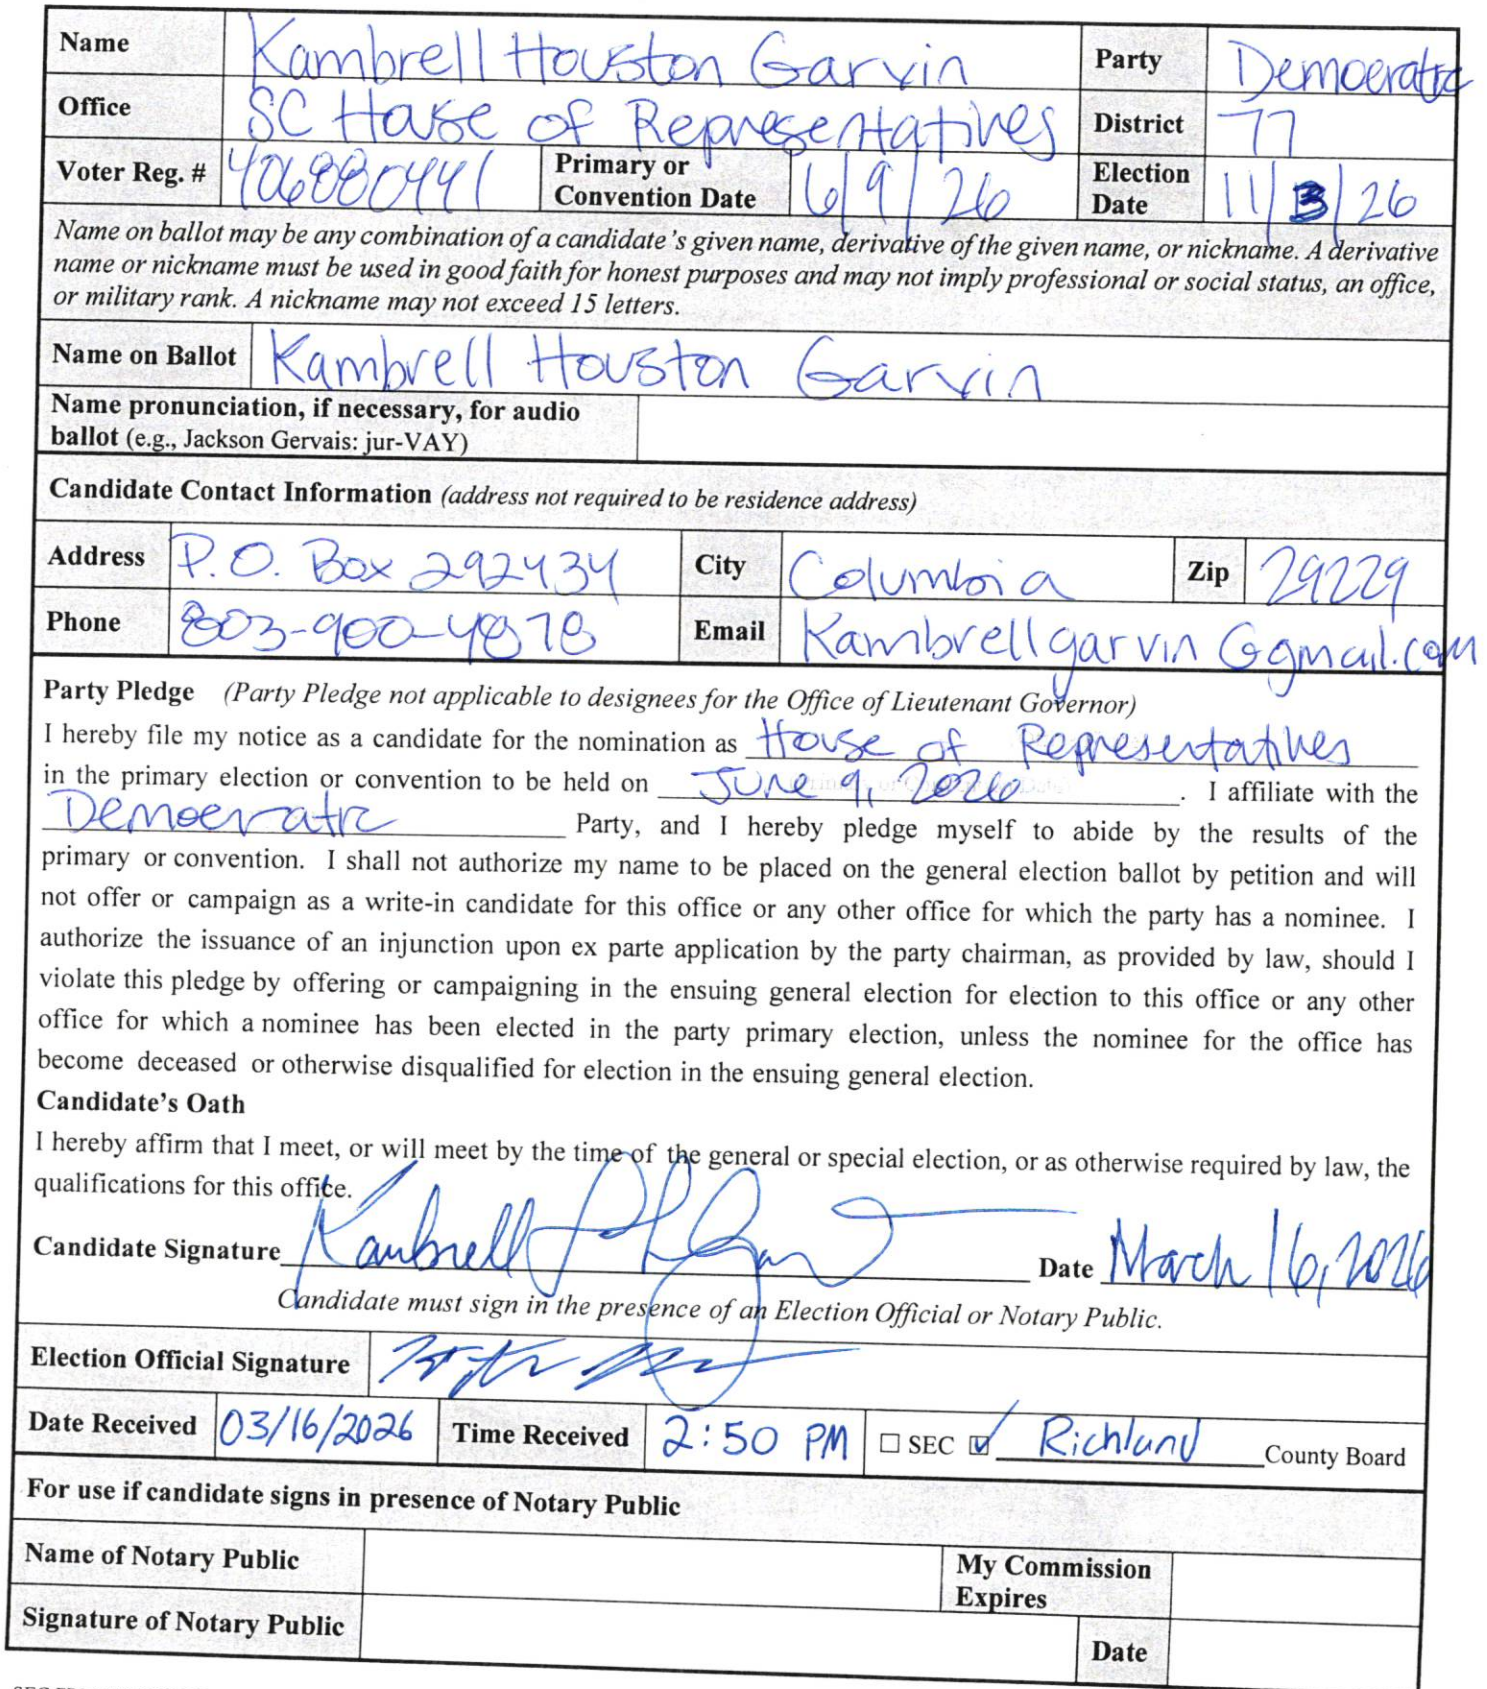 Name Kambrell Houston Garvin Party Democratic
Office SC House of Representatives District 77
Voter Reg. # 406880441 Primary or Convention Date 6/9/26 Election Date 11/3/26
Name on ballot may be any combination of a candidate's given name, derivative of the given name, or nickname. A derivative
name or nickname must be used in good faith for honest purposes and may not imply professional or social status, an office,
or military rank. A nickname may not exceed 15 letters.
Name on Ballot Kambrell Houston Garvin
Name pronunciation, if necessary, for audio
ballot (e.g., Jackson Gervais: jur-VAY)
Candidate Contact Information (address not required to be residence address)
Address P.O. Box 292434 City Columbia Zip 29229
Phone 803-900-4878 Email Kambrellgarvin@gmail.com
Party Pledge (Party Pledge not applicable to designees for the Office of Lieutenant Governor)
I hereby file my notice as a candidate for the nomination as House of Representatives
in the primary election or convention to be held on June 9, 2026. I affiliate with the
Democratic Party, and I hereby pledge myself to abide by the results of the
primary or convention. I shall not authorize my name to be placed on the general election ballot by petition and will
not offer or campaign as a write-in candidate for this office or any other office for which the party has a nominee. I
authorize the issuance of an injunction upon ex parte application by the party chairman, as provided by law, should I
violate this pledge by offering or campaigning in the ensuing general election for election to this office or any other
office for which a nominee has been elected in the party primary election, unless the nominee for the office has
become deceased or otherwise disqualified for election in the ensuing general election.
Candidate's Oath
I hereby affirm that I meet, or will meet by the time of the general or special election, or as otherwise required by law, the
qualifications for this office.
Candidate Signature Kambrell Date March 16, 2026
Candidate must sign in the presence of an Election Official or Notary Public.
Election Official Signature
Date Received 03/16/2026 Time Received 2:50 PM ☐ SEC ☑ Richland County Board
For use if candidate signs in presence of Notary Public
Name of Notary Public My Commission Expires
Signature of Notary Public Date